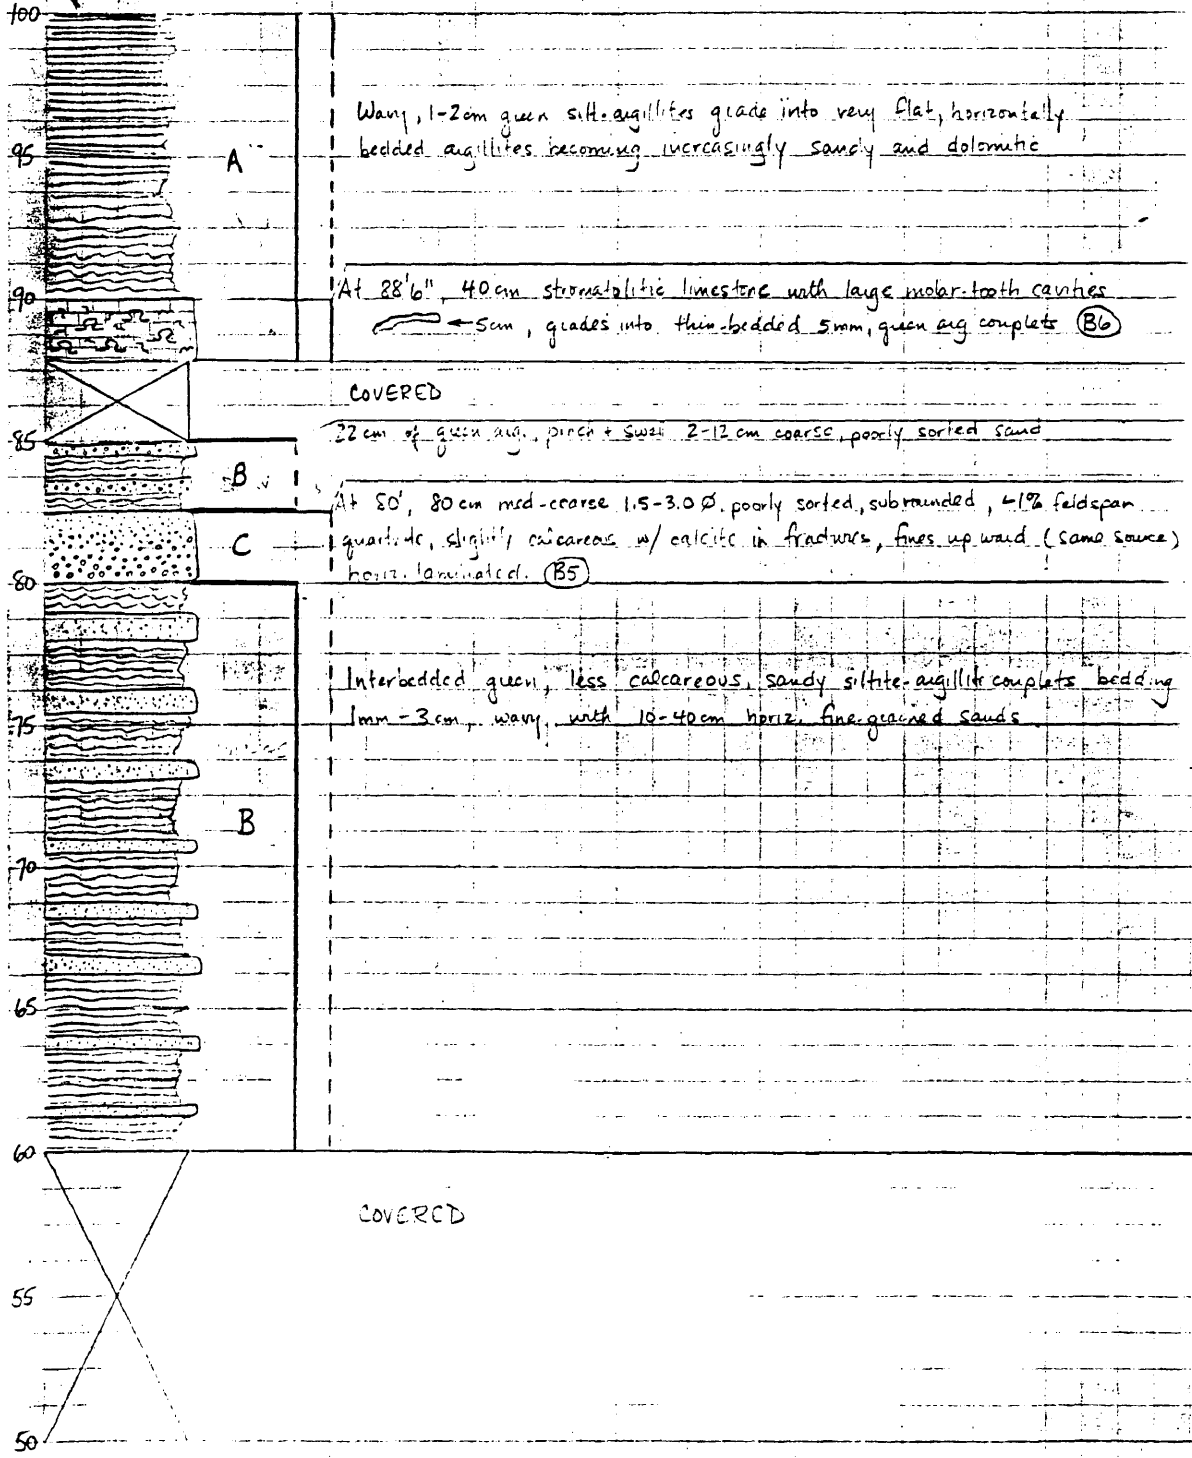 100
Wavy, 1-2cm green silt-argillites grade into very flat, horizontally
95
bedded argillites becoming increasingly sandy and dolomitic
A
At 88'6", 40cm stromatolitic limestone with large molar-tooth cavities
90
←5cm, grades into thin-bedded 5mm, green arg couplets (B6)
COVERED
85
22cm of green arg., pinch + swell 2-12cm coarse, poorly sorted sand
B
At 80', 80cm med-coarse 1.5-3.0 Ø, poorly sorted, subrounded, <1% feldspar
C
quartzite, slightly calcareous w/ calcite in fractures, fines upward (same source)
80
horiz. laminated. (B5)
Interbedded green, less calcareous, sandy siltite-argillite couplets bedding
75
1mm-3cm, wavy, with 10-40cm horiz. fine-grained sands.
B
70
65
60
COVERED
55
50